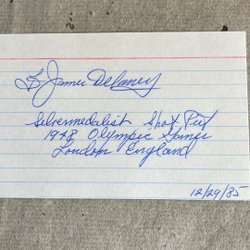 F. James Delaney
Silvermedalist Shot Put
1948 Olympic Games
London England
12/29/85